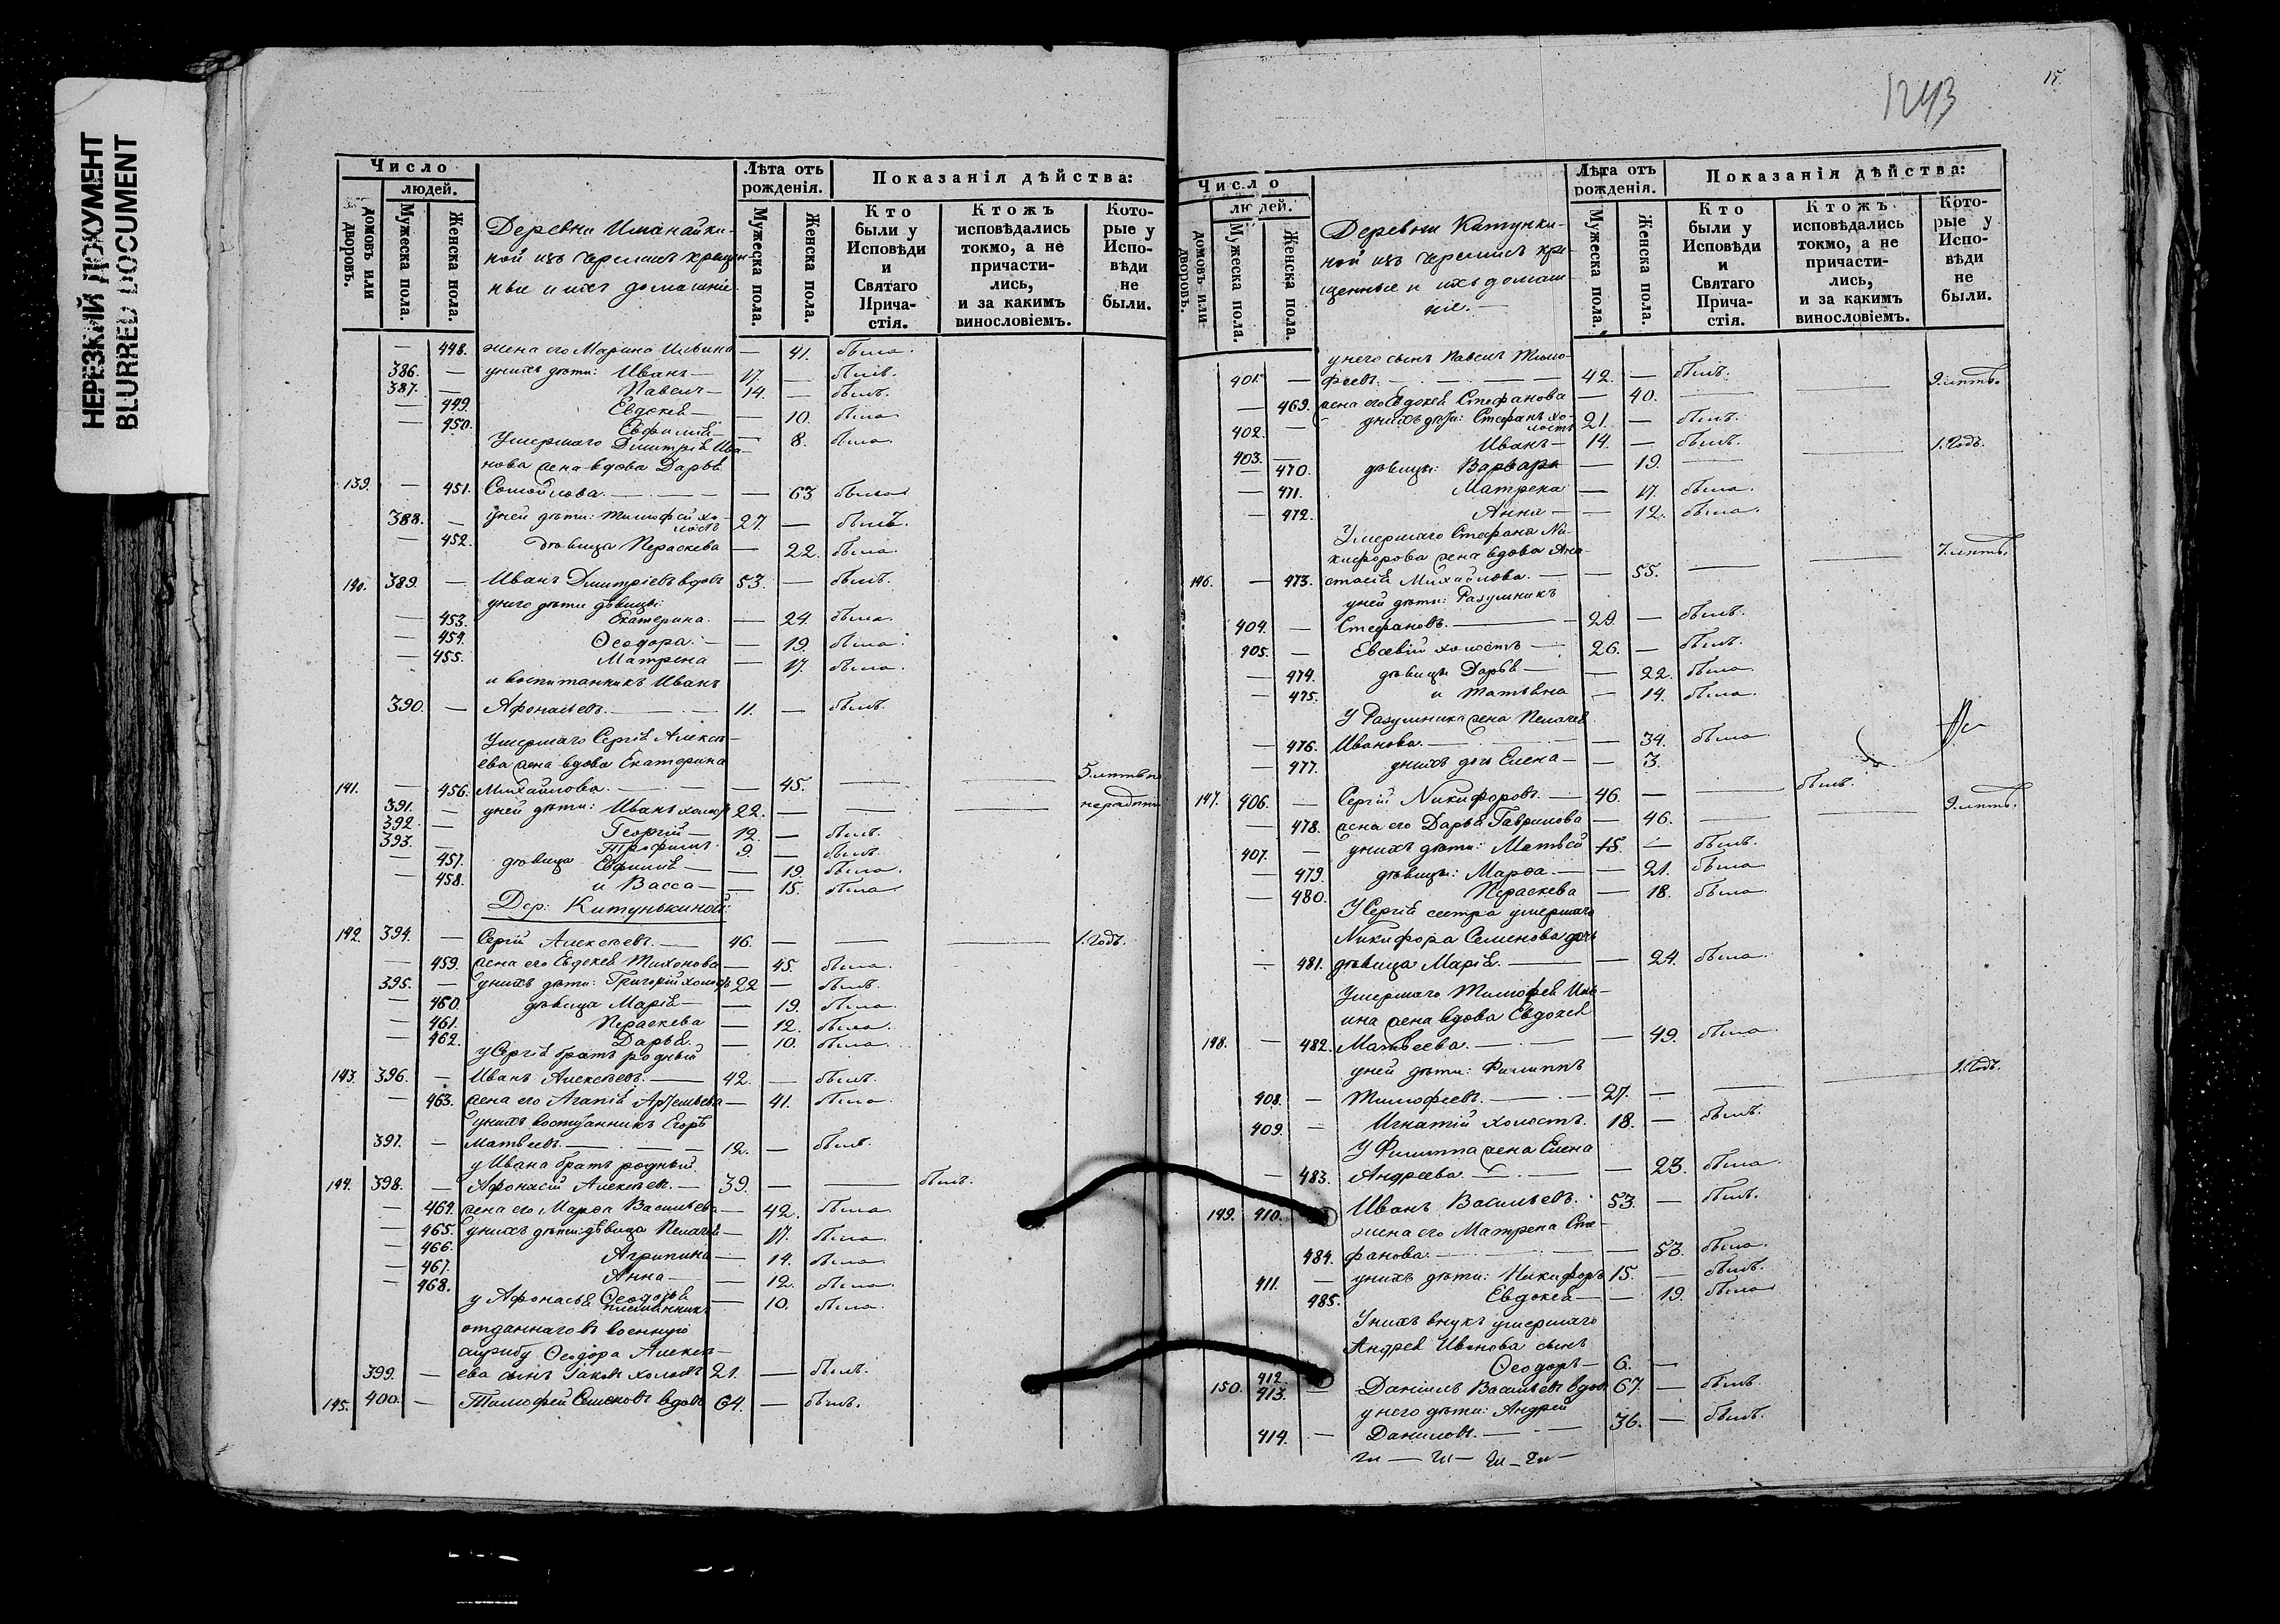 НЕРЕЗКИЙ ДОКУМЕНТ
BLURRED DOCUMENT
Число
людей.
домовъ или дворовъ.
Мужеска пола.
Женска пола.
Деревни Иманайки-
ной изъ черемисъ крещен-
ные и ихъ домашніе.
Лѣта отъ рожденія.
Мужеска пола.
Женска пола.
Показанія дѣйства:
Кто были у Исповѣди и Святаго Прича-стія.
Ктожъ исповѣдались токмо, а не причасти-лись, и за какимъ винословіемъ.
Кото-рые у Испо-вѣди не были.
— 448. жена его Марина Ильина — 41. была.
386. — у нихъ дѣти: Иванъ — 17. — былъ.
387. — Павелъ — 14. — былъ.
— 449. Евдокія — — 10. была
— 450. Евфимія — — 8. была
Умершаго Дмитрія Ива-
нова жена вдова Дарья
139. — 451. Самойлова. — — 63 была
388. — у ней дѣти: Тимофей хо-
лостъ 27. — былъ.
— 452. дѣвица Параскева — 22. была.
140. 389. — Иванъ Дмитріевъ вдовъ 53. — былъ.
у него дѣти дѣвицы:
— 453. Екатерина. — 24. была.
— 454. Ѳеодора. — — 19. была.
— 455. Матрена — 17. была.
и воспитанникъ Иванъ
390. — Афонасьевъ. — 11. — былъ.
Умершаго Сергія Алексѣ-
ева жена вдова Екатерина
141. — 456. Михайлова. — — 45. — — 5. лѣтъ по
391. — у ней дѣти: Иванъ холост 22. — — — нерадѣнію
392. — Георгій — 12. — былъ.
393. — Трофимъ. 9. — былъ.
— 457. дѣвица Евфимія — — 19. была.
— 458. и Васса — — 15. была
Дер: Китунькиной:
142. 394. — Сергій Алексѣевъ. — 46. — — — 1. годъ.
— 459. жена его Евдокія Тихонова — 45. была.
395. — у нихъ дѣти: Григорій холостъ 22 — былъ.
— 460. дѣвица Марія — — 19. была
— 461. Параскева — 12. была.
— 462. Дарья. — 10. была
у Сергія братъ родный
143. 396. — Иванъ Алексѣевъ. — 42. — былъ.
— 463. жена его Агапія Артемьева — 41. была
у нихъ воспитанникъ Егоръ
397. — Матвеевъ. — — 12. — былъ.
у Ивана братъ родный
144. 398. — Афонасій Алексѣев. — 39. — — былъ.
— 464. жена его Марѳа Васильева — 42. была
— 465. у нихъ дѣти: дѣвица Пелагія — 17. была.
— 466. Агрипина — 14. была
— 467. Анна — — 12. была
— 468. Ѳеодосья — 10. была.
у Афонасья племянникъ
отданнаго въ военную
службу Ѳеодора Алексѣ-
399. — ева сынъ Іаковъ холостъ 21. — былъ.
145. 400. — Тимофей Семеновъ вдовъ 64. — былъ.
1243
15
Число
людей.
домовъ или дворовъ.
Мужеска пола.
Женска пола.
Деревни Китуньки-
ной изъ черемисъ кре-
щенные и ихъ домаш
ніе. —
Лѣта отъ рожденія.
Мужеска пола.
Женска пола.
Показанія дѣйства:
Кто были у Исповѣди и Святаго Прича-стія.
Ктожъ исповѣдались токмо, а не причасти-лись, и за какимъ винословіемъ.
Кото-рые у Испо-вѣди не были.
у него сынъ Павелъ Тимо-
401. — феевъ. — — 42. — былъ.
— 469. жена его Евдокія Стефанова — 40. — — 9. лѣтъ.
402. — у нихъ дѣти: Стефанъ хо-
лостъ 21. — былъ.
403. — Иванъ — 14. — былъ.
— 470. дѣвицы: Варвара — 19. — — 1. годъ.
— 471. Матрена — 17. была.
— 472. Анна — — 12. была.
Умершаго Стефана Ни-
кифорова жена вдова Ана-
146. — 473. стасія Михайлова. — — 55. — — 7. лѣтъ.
у ней дѣти: Разумникъ
404. — Стефановъ. — 29. — былъ.
405. — Евсевій холостъ — 26. — былъ.
— 474. дѣвицы Дарья — — 22. была
— 475. и Татьяна — 14. была.
У Разумника жена Пелагія
— 476. Иванова. — — 34. была
— 477. у нихъ дочь Елена — — 3.
147. 406. — Сергій Никифоровъ. — 46. — — былъ.
— 478. жена его Дарья Гаврилова — 46. — — 9. лѣтъ.
407. — у нихъ дѣти: Матвей 15. — былъ.
— 479. дѣвицы: Марѳа. — — 21. была
— 480. Параскева — 18. была.
У Сергія сестра умершаго
Никифора Семенова дочь
— 481. дѣвица Марія. — — 24. была.
Умершаго Тимофея Иль-
ина жена вдова Евдокія
148. — 482. Матвеева. — — 49. была
у ней дѣти: Филиппъ
408. — Тимофеевъ. — 27. — — — 1. годъ.
409. — Игнатій холостъ. 18. — былъ.
У Филиппа жена Елена
— 483. Андреева. — — 23. была
149. 410. Иванъ Васильевъ. 53. — былъ.
жена его Матрена Сте-
484. фанова. — — 53. была.
411. — у нихъ дѣти: Никифоръ 15. — былъ.
485. Евдокія — — 19. была
У нихъ внукъ умершаго
Андрея Иванова сынъ
412. Ѳеодоръ — 6. —
150. 413. — Даніилъ Васильевъ вдов 67. — былъ.
у него дѣти: Андрей
414. — Даниловъ. — 36. — былъ.